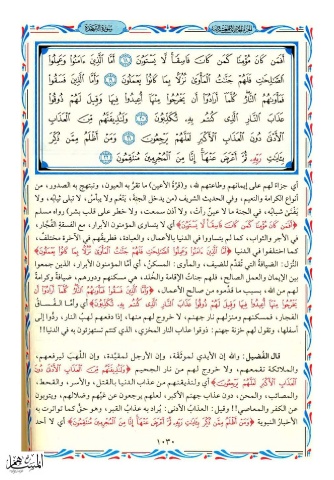 أَفَمَن كَانَ مُؤْمِنًا كَمَن كَانَ فَاسِقًا لَّا يَسْتَوُونَ ١٨ أَمَّا الَّذِينَ ءَامَنُوا وَعَمِلُوا
الصَّالِحَاتِ فَلَهُمْ جَنَّاتُ الْمَأْوَى نُزُلًا بِمَا كَانُوا يَعْمَلُونَ ١٩ وَأَمَّا الَّذِينَ فَسَقُوا
فَمَأْوَاهُمُ النَّارُ كُلَّمَا أَرَادُوا أَن يَخْرُجُوا مِنْهَا أُعِيدُوا فِيهَا وَقِيلَ لَهُمْ ذُوقُوا
عَذَابَ النَّارِ الَّذِي كُنتُم بِهِ تُكَذِّبُونَ ٢٠ وَلَنُذِيقَنَّهُم مِّنَ الْعَذَابِ
الْأَدْنَى دُونَ الْعَذَابِ الْأَكْبَرِ لَعَلَّهُمْ يَرْجِعُونَ ٢١ وَمَنْ أَظْلَمُ مِمَّن ذُكِّرَ
بِآيَاتِ رَبِّهِ ثُمَّ أَعْرَضَ عَنْهَا إِنَّا مِنَ الْمُجْرِمِينَ مُنتَقِمُونَ ٢٢
أي جزاءً لهم على إيمانهم وطاعتهم لله، و(قُرَّةُ الأعين) ما تقرُّ به العيون، وتبتهج به الصدور، من
أنواع الكرامة والنعيم، وفي الحديث الشريف (من يدخل الجنَّة، ينْعَم ولا يبأس، لا تَبلى ثيابُه، ولا
يَفنَى شبابُه، في الجنة ما لا عينٌ رأت، ولا أذن سمعت، ولا خطر على قلب بشر) رواه مسلم
﴿أَفَمَن كَانَ مُؤْمِنًا كَمَن كَانَ فَاسِقًا لَّا يَسْتَوُونَ﴾ أي لا يتساوى المؤمنون الأبرار، مع الفسقة الفُجَّار،
في الأجر والثواب، كما لم يتساووا في الدنيا بالأعمال، والعبادة، فطريقُهم في الآخرة مختلف،
كما اختلفوا في الدنيا
النُّزل: الضيافةُ التي تُقدَّم للضيف، والمأوى: المسكنُ، أي أمَّا المؤمنون الأبرار، الذين جمعوا
بين الإيمان والعمل الصالح، فلهم جناتُ الإقامة والخُلد، هي مسكنهم ودورهم، ضيافةً وكرامةً
لهم من الله، بسبب ما قدَّموه من صالح الأعمال، ﴿وَأَمَّا الَّذِينَ فَسَقُوا فَمَأْوَاهُمُ النَّارُ كُلَّمَا أَرَادُوا أَن
يَخْرُجُوا مِنْهَا أُعِيدُوا فِيهَا وَقِيلَ لَهُمْ ذُوقُوا عَذَابَ النَّارِ الَّذِي كُنتُم بِهِ تُكَذِّبُونَ﴾ أي وأمَّا الفُسَّاق
الفجار، فمسكنهم ومنزلهم نار جهنم، لا خروج لهم منها، إذا دفعهم لهب النار، ردُّوا إلى
أسفلها، وتقول لهم خزنة جهنم: ذوقوا عذاب النار المخزي، الذي كنتم تستهزئون به في الدنيا!!
قال الفُضيل: والله إن الأيدي لموثَقة، وإن الأرجل لمقيَّدة، وإن اللَّهب ليرفعهم،
والملائكة تقمعهم، ولا خروج لهم من نار الجحيم ﴿وَلَنُذِيقَنَّهُم مِّنَ الْعَذَابِ الْأَدْنَى دُونَ
الْعَذَابِ الْأَكْبَرِ لَعَلَّهُمْ يَرْجِعُونَ﴾ أي ولنذيقنهم من عذاب الدنيا بالقتل، والأسر، والقحط،
والمصائب، والمحن، دون عذاب جهنم الأكبر، لعلهم يرجعون عن غيهم وضلالهم، ويتوبون
عن الكفر والمعاصي!! وقيل: العذابُ الأدنى: يُراد به عذاب القبر، وهو حقٌّ كما تواترت به
الأخبارُ النبوية ﴿وَمَنْ أَظْلَمُ مِمَّن ذُكِّرَ بِآيَاتِ رَبِّهِ ثُمَّ أَعْرَضَ عَنْهَا إِنَّا مِنَ الْمُجْرِمِينَ مُنتَقِمُونَ﴾ أي لا أحد
١٠٣٠